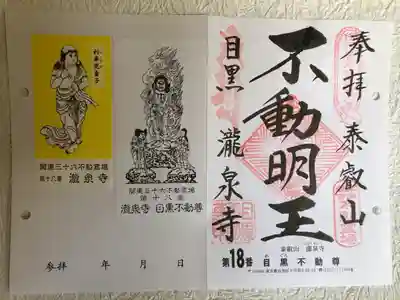 奉拝 泰叡山
不動明王
目黒 瀧泉寺
泰叡山 瀧泉寺
第18番 目黒不動尊
関東三十六不動霊場
第十八番
瀧泉寺 目黒不動尊
関東三十六不動霊場
第十八番 瀧泉寺
参拝 年 月 日